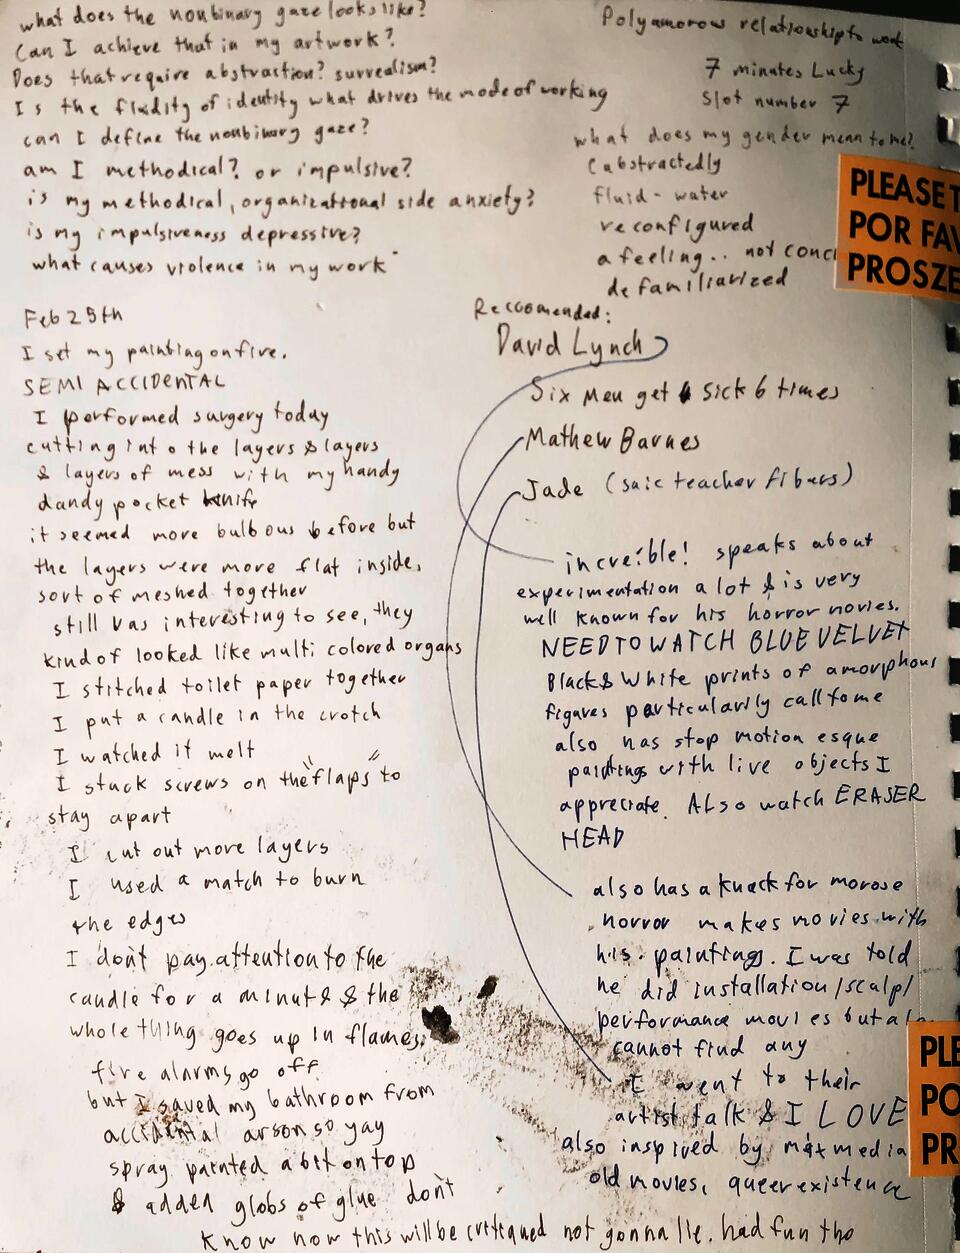 what does the nonbinary gaze looks like?
Can I achieve that in my artwork?
Does that require abstraction? surrealism?
Is the fluidity of identity what drives the mode of working
can I define the nonbinary gaze?
am I methodical? or impulsive?
is my methodical, organizational side anxiety?
is my impulsiveness depressive?
what causes violence in my work
Polyamorous relationship to work
7 minutes Lucky
Slot number 7
what does my gender mean to me?
(abstractedly
fluid - water
reconfigured
a feeling.. not conc
defamiliarized
PLEASE T
POR FAV
PROSZE
Feb 25th
I set my painting on fire.
SEMI ACCIDENTAL
I performed surgery today
cutting into the layers & layers
& layers of mess with my handy
dandy pocket knife
it seemed more bulbous before but
the layers were more flat inside,
sort of meshed together
still was interesting to see, they
kind of looked like multi colored organs
I stitched toilet paper together
I put a candle in the crotch
I watched it melt
I stuck screws on the "flaps" to
stay apart
I cut out more layers
I used a match to burn
the edges
I don't pay attention to the
candle for a minute & the
whole thing goes up in flames.
fire alarms go off
but I saved my bathroom from
accidental arson so yay
spray painted a bit on top
& added globs of glue don't
know how this will be critiqued not gonna lie, had fun tho
Reccomended:
David Lynch
Six Men get sick 6 times
Mathew Barnes
Jade (saic teacher fibers)
increíble! speaks about
experimentation a lot & is very
well known for his horror movies.
NEED TO WATCH BLUE VELVET
Black & White prints of amorphous
figures particularily call to me
also has stop motion esque
paintings with live objects I
appreciate. ALSO watch ERASER
HEAD
also has a knack for morose
horror makes movies with
his paintings. I was told
he did installation/scalp/
performance movies but
cannot find any
I went to their
artist talk & I LOVE
also inspired by mixt media
old movies, queer existence
PLE
PO
PR